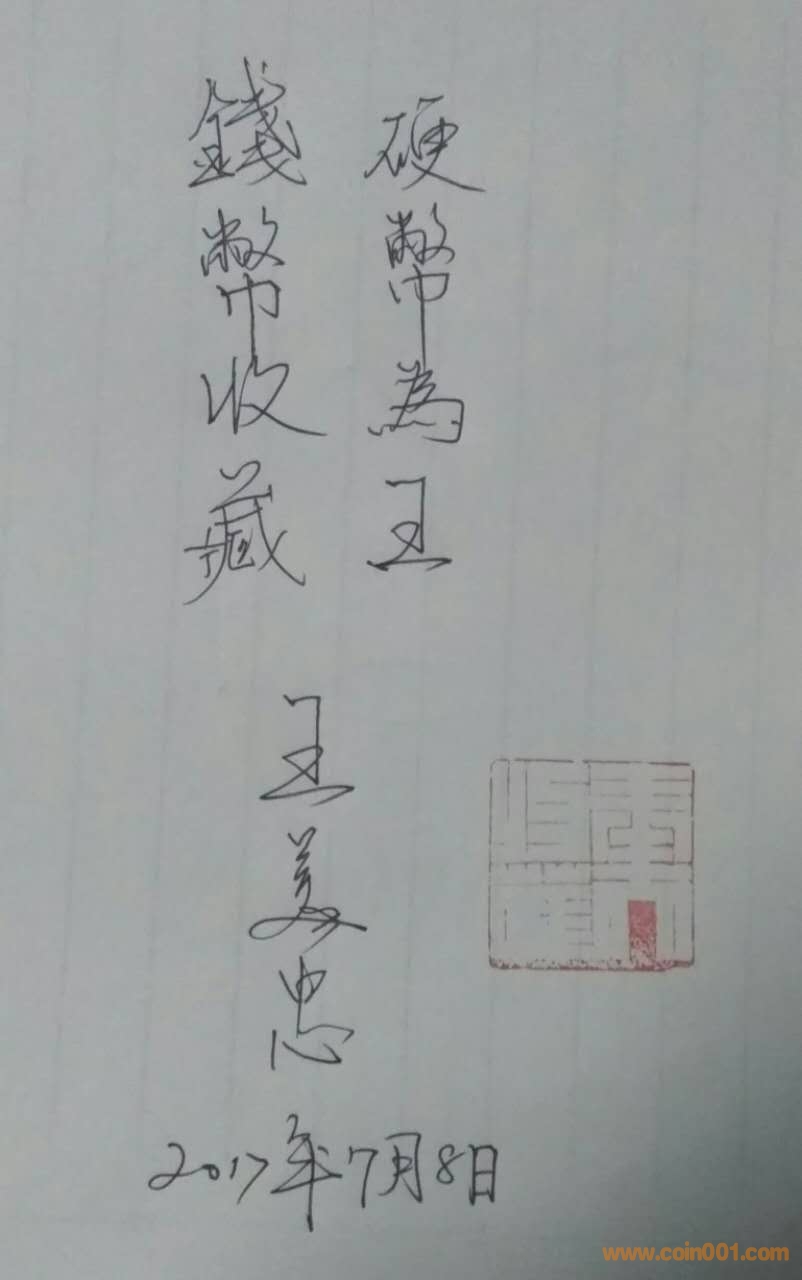 錢幣收藏
硬幣為王
王美忠
2017年7月8日
www.coin001.com